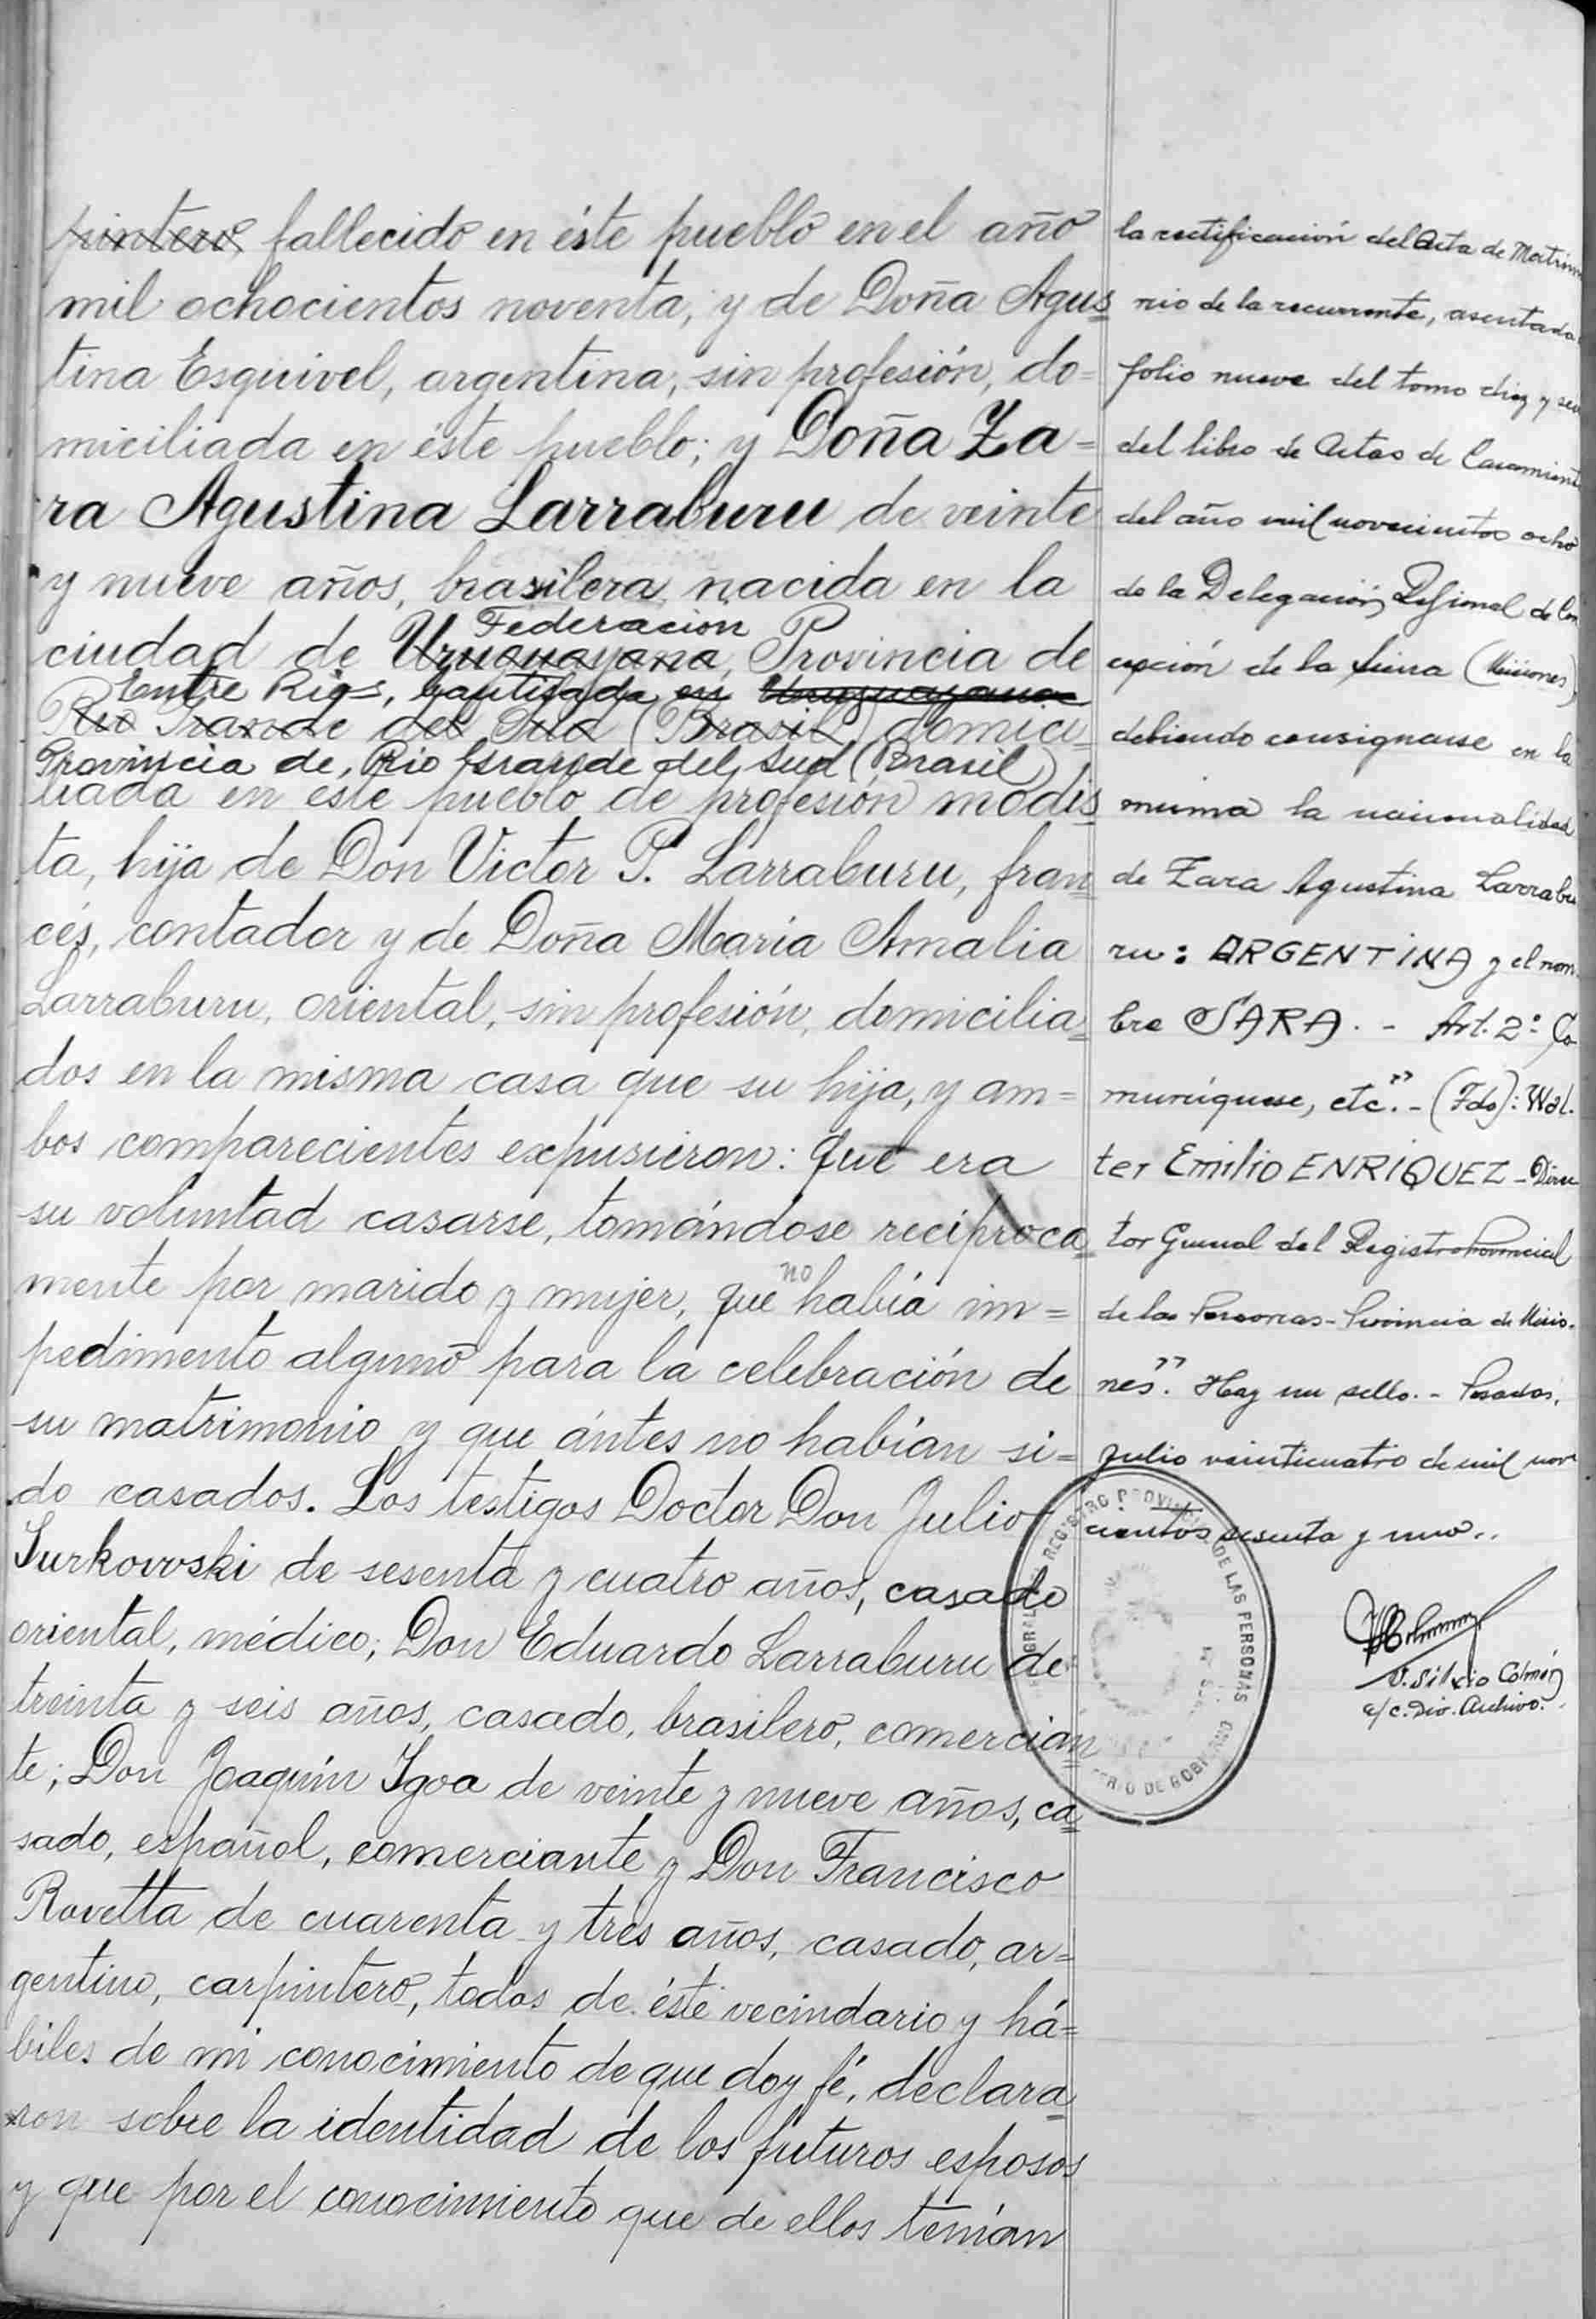 pintero fallecido en éste pueblo en el año
mil ochocientos noventa, y de Doña Agus=
tina Esquivel, argentina, sin profesión, do=
miciliada en éste pueblo; y Doña Za=
ra Agustina Larraburu de veinte
y nueve años, brasilera, nacida en la
Federación
ciudad de Uruguayana, Provincia de
Entre Rios, bautisada en Uruguayana
Rio Grande del Sud (Brasil) domici=
Provincia de, Rio Grande del Sud (Brasil)
liada en este pueblo de profesión modis=
ta, hija de Don Victor P. Larraburu, fran=
cés, contador y de Doña Maria Amalia
Larraburu, oriental, sin profesión, domicilia=
dos en la misma casa que su hija, y am=
bos comparecientes expusieron: que era
su voluntad casarse, tomándose recíproca=
mente por marido y mujer, que no había im=
pedimento alguno para la celebración de
su matrimonio y que ántes no habían si=
do casados. Los testigos Doctor Don Julio
Surkowski de sesenta y cuatro años, casado
oriental, médico; Don Eduardo Larraburu de
treinta y seis años, casado, brasilero, comercian=
te; Don Joaquín Ygoa de veinte y nueve años, ca=
sado, español, comerciante y Don Francisco
Rovetta de cuarenta y tres años, casado, ar=
gentino, carpintero, todos de éste vecindario y há=
biles de mi conocimiento de que doy fé, declara=
ron sobre la identidad de los futuros esposos
y que por el conocimiento que de ellos tenían
la rectificación del Acta de Matrimo
nio de la recurrente, asentada
folio nueve del tomo diez y
del libro de Actas de Casamiento
del año mil novecientos ocho
de la Delegación Regional de Con
cepción de la Sierra (Misiones)
debiendo consignarse en la
misma la nacionalidad
de Zara Agustina Larrabu
ru: ARGENTINA y el nom
bre SARA. - Art. 2º: Co
muníquese, etc." - (Fdo): Wal.
ter Emilio ENRIQUEZ - Direc
tor General del Registro Provincial
de las Personas - Provincia de Misio.
nes". Hay un sello. - Posadas,
Julio veinticuatro de mil nov
cientos sesenta y uno..
REGISTRO PROVINCIAL DE LAS PERSONAS
DE GOBIERNO
V. Silvio Colmán
a/c. Div. Archivo.